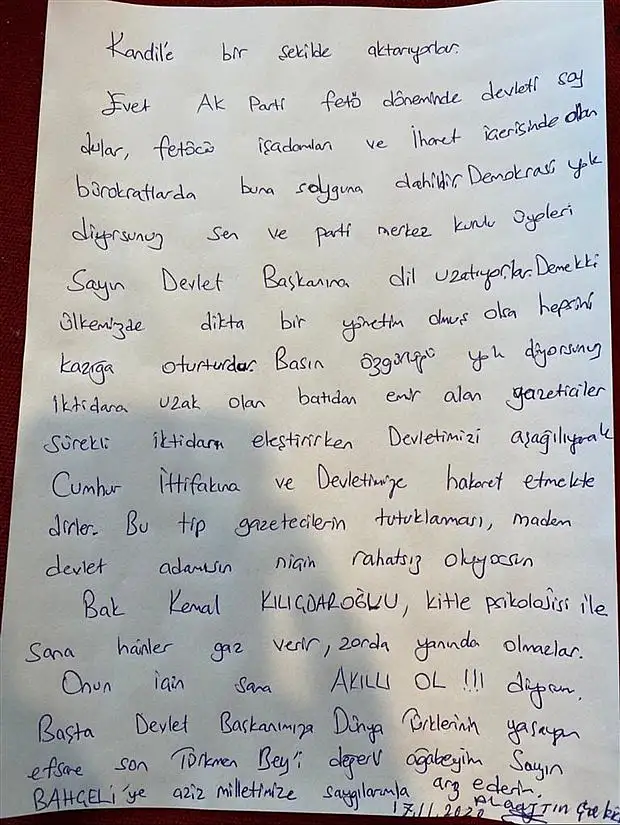 Kandil'e bir şekilde aktarıyorlar.
Evet AK Parti fetö döneminde devleti soy
dular, fetöcü işadamları ve ihanet içerisinde olan
bürokratlarda buna soyguna dahildir. Demokrasi yok
diyorsunuz sen ve parti merkez kurulu üyeleri
Sayın Devlet Başkanına dil uzatıyorlar. Demekki
ülkemizde dikta bir yönetim olmuş olsa hepsini
kazığa oturturdu. Basın özgürlüğü yok diyorsunuz
iktidara uzak olan batıdan emir alan gazeticiler
sürekli iktidarı eleştirirken Devletimizi aşağılıyarak
Cumhur İttifakına ve Devletimize hakaret etmekte
dirler. Bu tip gazetecilerin tutuklaması, madem
devlet adamısın niçin rahatsız oluyorsun
Bak Kemal KILIÇDAROĞLU, kitle psikolojisi ile
sana hainler gaz verir, zorda yanında olmazlar.
Onun için sana AKILLI OL !!! diyorum.
Başta Devlet Başkanımıza Dünya Türklerinin yaşayan
efsane son Türkmen Bey'i değerli ağabeyim Sayın
BAHÇELİ'ye aziz milletimize saygılarımla arz ederim.
17.11.2020 ALAATTİN